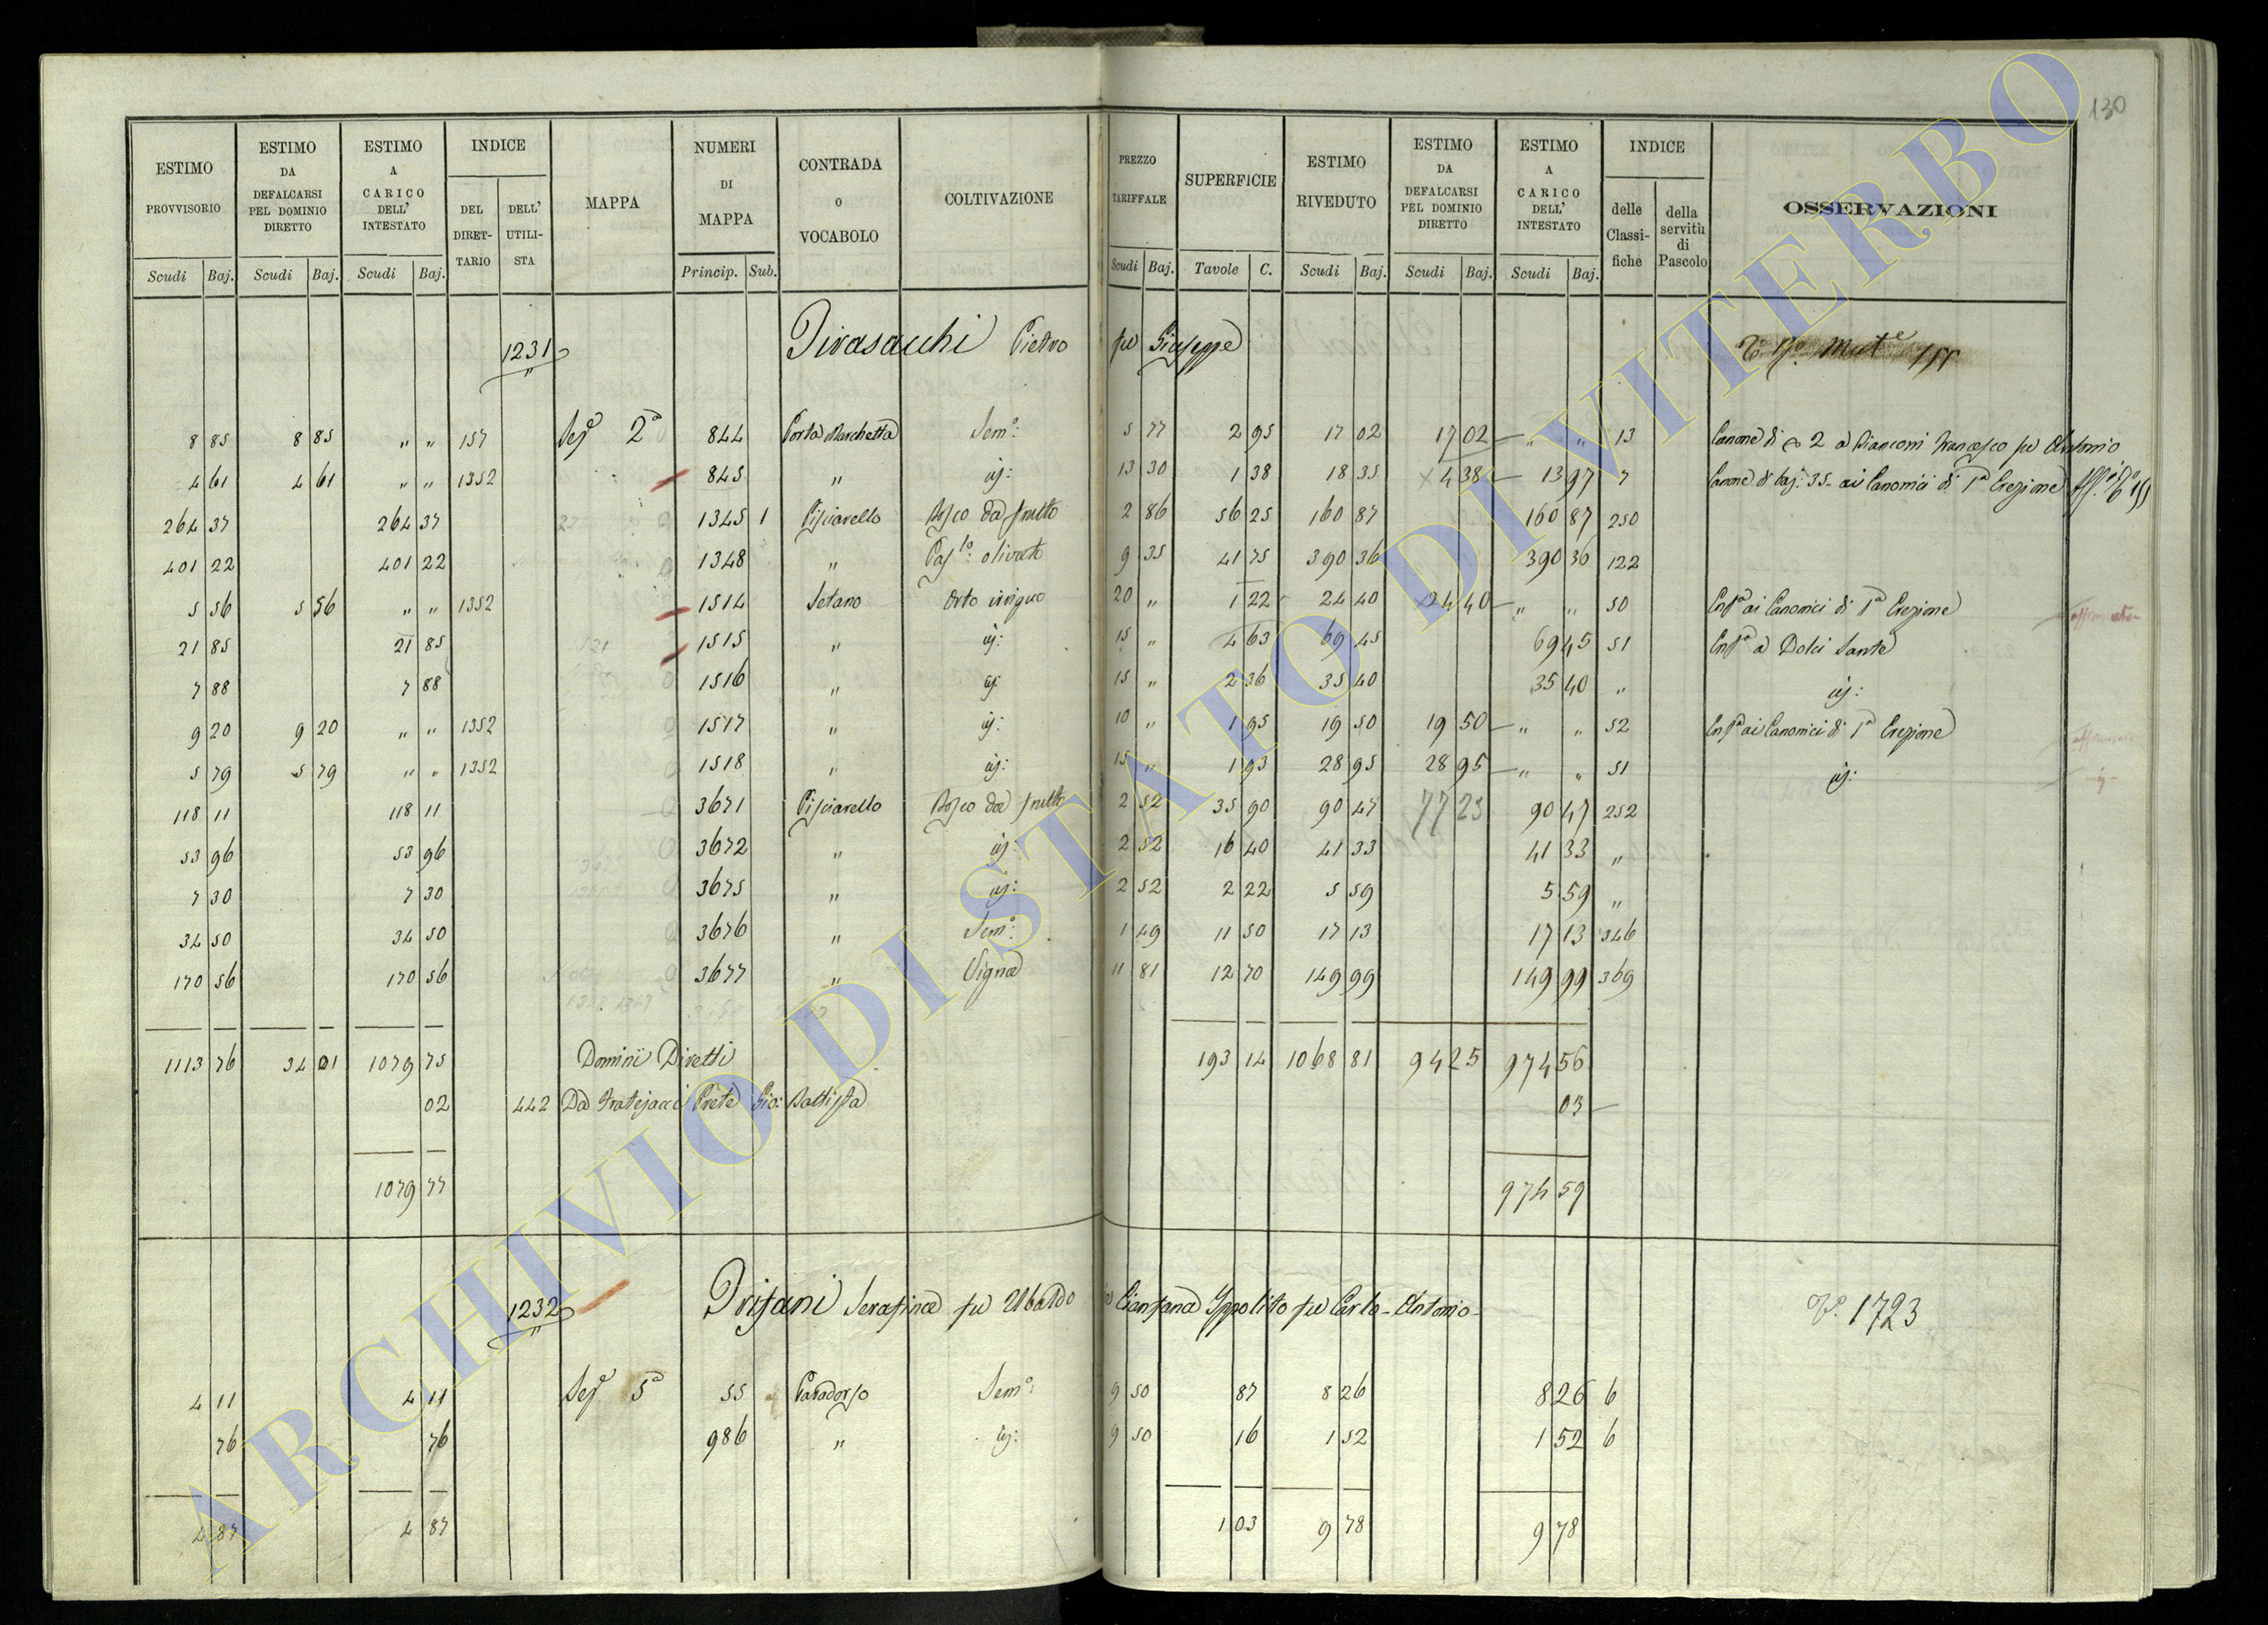 130
ESTIMO PROVVISORIO | ESTIMO DA DEFALCARSI PEL DOMINIO DIRETTO | ESTIMO A CARICO DELL' INTESTATO | INDICE | MAPPA | NUMERI DI MAPPA | CONTRADA O VOCABOLO | COLTIVAZIONE | PREZZO TARIFFALE | SUPERFICIE | ESTIMO RIVEDUTO | ESTIMO DA DEFALCARSI PEL DOMINIO DIRETTO | ESTIMO A CARICO DELL' INTESTATO | INDICE | OSSERVAZIONI
DEL DIRETTARIO | DELL' UTILISTA | delle Classifiche | della servitù di Pascolo
Scudi Baj. | Scudi Baj. | Scudi Baj. | Princip. Sub. | Scudi Baj. | Tavole C. | Scudi Baj. | Scudi Baj. | Scudi Baj.
1231 Pietro fu Giuseppe
8 85 | 8 85 | " " | 157 | 2ª | 844 | Porta Marchetta | Semo: | 5 77 | 2 95 | 17 02 | 17 02 | " " | 13 | Canone di 2 a Francesco fu Antonio
4 61 | 4 61 | " " | 1352 | 845 | " | 13 30 | 1 38 | 18 35 | 4 38 | 13 97 | 7 | Canone di baj: 35 ai Canonici di 1ª Erezione
264 37 | 264 37 | 1345 1 | Pisciarello | Bosco da frutto | 2 86 | 56 25 | 160 87 | 160 87 | 250
401 22 | 401 22 | 1348 | " | Paslo: olivato | 9 35 | 41 75 | 390 36 | 390 36 | 122
5 56 | 5 56 | " " | 1352 | 1514 | Setano | Orto irriguo | 20 " | 1 22 | 24 40 | 24 40 | " " | 50 | Enfª ai Canonici di 1ª Erezione
21 85 | 21 85 | 1515 | " | 15 " | 4 63 | 69 45 | 69 45 | 51 | Enfª a Dolci Sante
7 88 | 7 88 | 1516 | " | 15 " | 2 36 | 35 40 | 35 40 | "
9 20 | 9 20 | " " | 1352 | 1517 | " | 10 " | 1 95 | 19 50 | 19 50 | " " | 52 | Enfª ai Canonici di 1ª Erezione
5 79 | 5 79 | " " | 1352 | 1518 | " | 15 " | 1 93 | 28 95 | 28 95 | " " | 51
118 11 | 118 11 | 3671 | Pisciarello | Bosco da frutto | 2 52 | 35 90 | 90 47 | 77 23 | 90 47 | 252
53 96 | 53 96 | 3672 | " | 2 52 | 16 40 | 41 33 | 41 33 | "
7 30 | 7 30 | 3675 | " | 2 52 | 2 22 | 5 59 | 5 59 | "
34 50 | 34 50 | 3676 | " | Semo: | 1 49 | 11 50 | 17 13 | 17 13 | 346
170 56 | 170 56 | 3677 | " | Vigna | 11 81 | 12 70 | 149 99 | 149 99 | 369
1113 76 | 34 01 | 1079 75 | Dominii Diretti | 193 14 | 1068 81 | 94 25 | 974 56
02 | 442 | Da Fratejacci Prete Gio: Battista | 03
1079 77 | 974 59
1232 Serafina fu Ubaldo Ippolito fu Carlo-Antonio
1723
4 11 | 4 11 | 5ª | 55 | Paradosso | Semo: | 9 50 | 87 | 8 26 | 8 26 | 6
76 | 76 | 986 | " | 9 50 | 16 | 1 52 | 1 52 | 6
4 87 | 4 87 | 1 03 | 9 78 | 9 78
ARCHIVIO DI STATO DI VITERBO